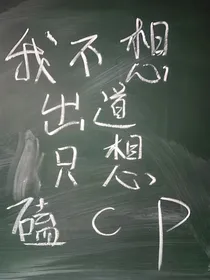 我不想
出道
只想
磕CP